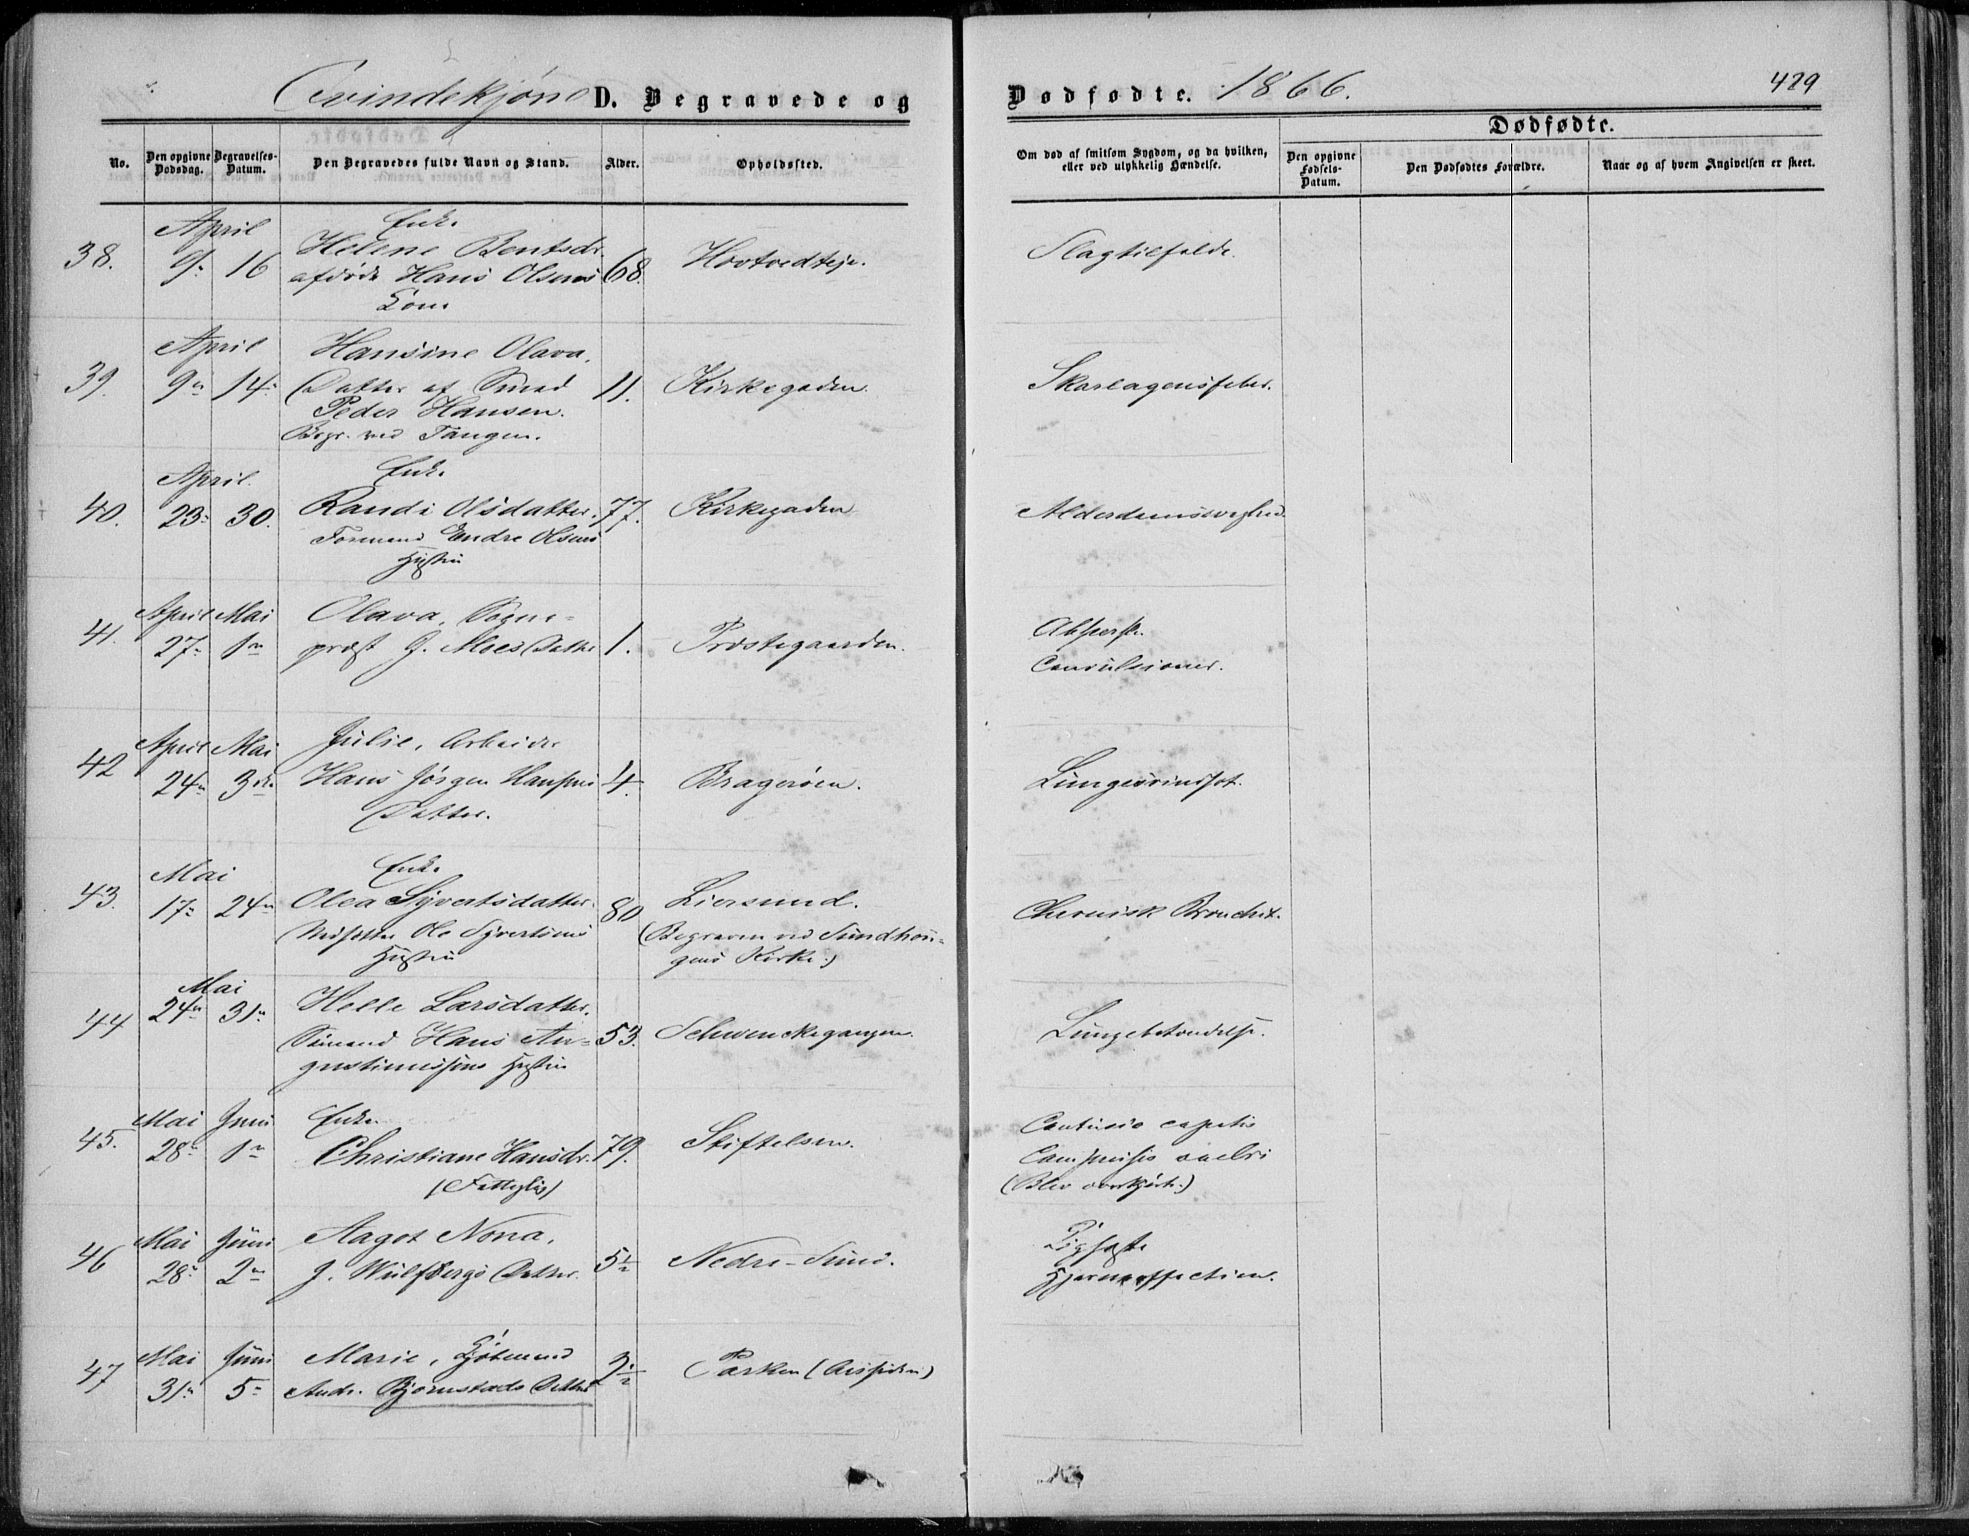 Qvindekjøn D. Begravede og
Dødfødte. 1866.
429
No.
Den opgivne Dødsdag.
Begravelses-Datum.
Den Begravedes fulde Navn og Stand.
Alder.
Opholdssted.
Om død af smitsom Sygdom, og da hvilken,
eller ved ulykkelig Hændelse.
Dødfødte.
Den opgivne Fødsels-Datum.
Den Dødfødtes Forældre.
Naar og af hvem Angivelsen er skeet.
April Enke
38. 9. 16 Helene Bentsdr. 68. Hovtvedteje. Slagtilfælde.
afdøde Hans Olsens
Kone
April Hansine Olava,
39. 9de 14. Datter af Smed 11. Kirkegaden. Skarlagensfeber.
Peder Hansen.
Begr. ved Tangen.
April. Enke
40. 23. 30. Randi Olsdatter. 77. Kirkegaden Alderdomssvaghed.
Formand Endre Olsens
Hustru
April Mai Olava, Sogne-
41. 27. 1ste præst J. Moes Datter 1. Præstegaarden.
Convulsioner.
April Mai Julie, Arbeider
42 24de 3die Hans Jørgen Hansens 4. Bragerøen. Lungesvindsot.
Datter.
Mai Enke
43. 17. 24de Olea Syvertsdatter. 80 Liersund. Chronisk Bronchit.
Ole Syvertsens (Begraven ved Sundhou-
Hustru gens Kirke.)
Mai
44 24de 31. Helle Larsdatter.
Sømand Hans Au- 53. Schwenckegangen. Lungebetændelse.
gustinussens Hustru
Mai Juni Enke Contusio capitis
45. 28. 1ste Christiane Hansdr. 79. Stiftelsen.
(Fattiglus) (Blev overkjørt.)
Mai Juni Aagot Nona,
46 28. 2den J. Wulfsbergs Datter. 5½ Nedre-Sund.
Hjerneaffection.
Mai Juni Marie,
47 31. 5. Andr. Bjørnstads Datter 3½ Parken